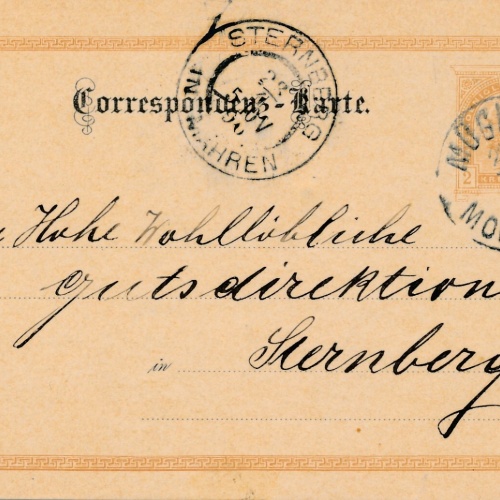 STERNBERG IN MÄHREN
Correspondenz-Karte.
2
Hohe Wohllöbliche
gutsdirektion
in Sternberg